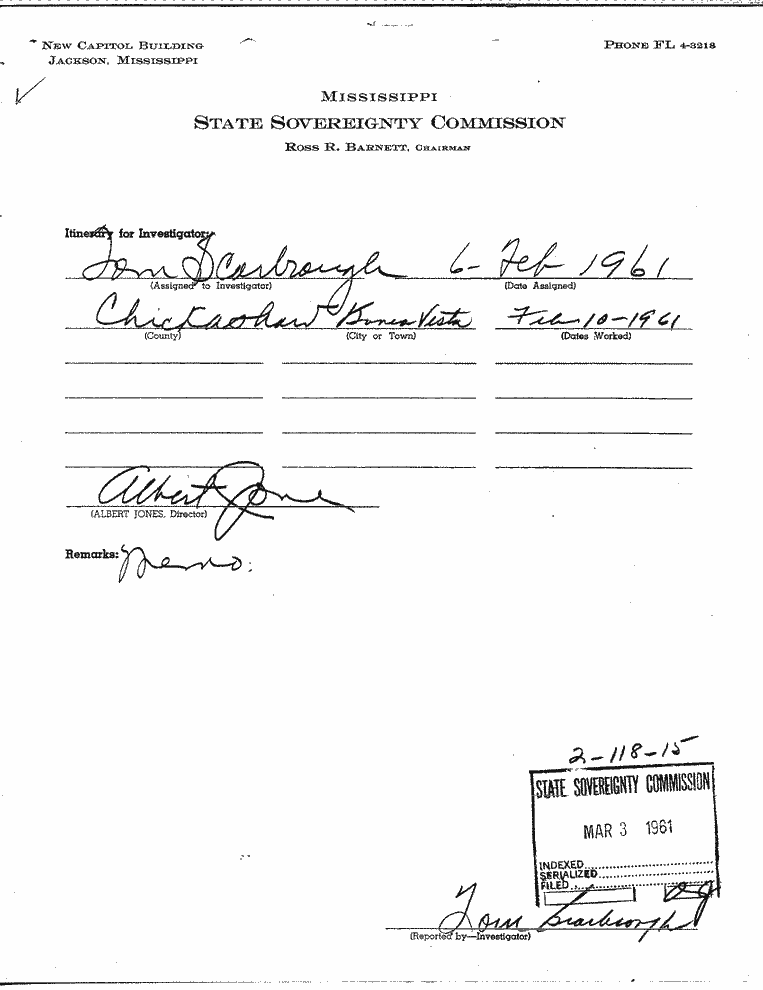 NEW CAPITOL BUILDING
JACKSON, MISSISSIPPI
PHONE FL 4-3218
MISSISSIPPI
STATE SOVEREIGNTY COMMISSION
ROSS R. BARNETT, CHAIRMAN
Itinerary for Investigator:
Tom Scarbrough 6- Feb 1961
(Assigned to Investigator) (Date Assigned)
Chickashaw Bunea Vista Feb-10-1961
(County) (City or Town) (Dates Worked)
Albert Jones
(ALBERT JONES, Director)
Remarks: Memo:
2-118-15
STATE SOVEREIGNTY COMMISSION
MAR 3 1961
INDEXED
SERIALIZED
FILED
Tom Scarbrough
(Reported by—Investigator)